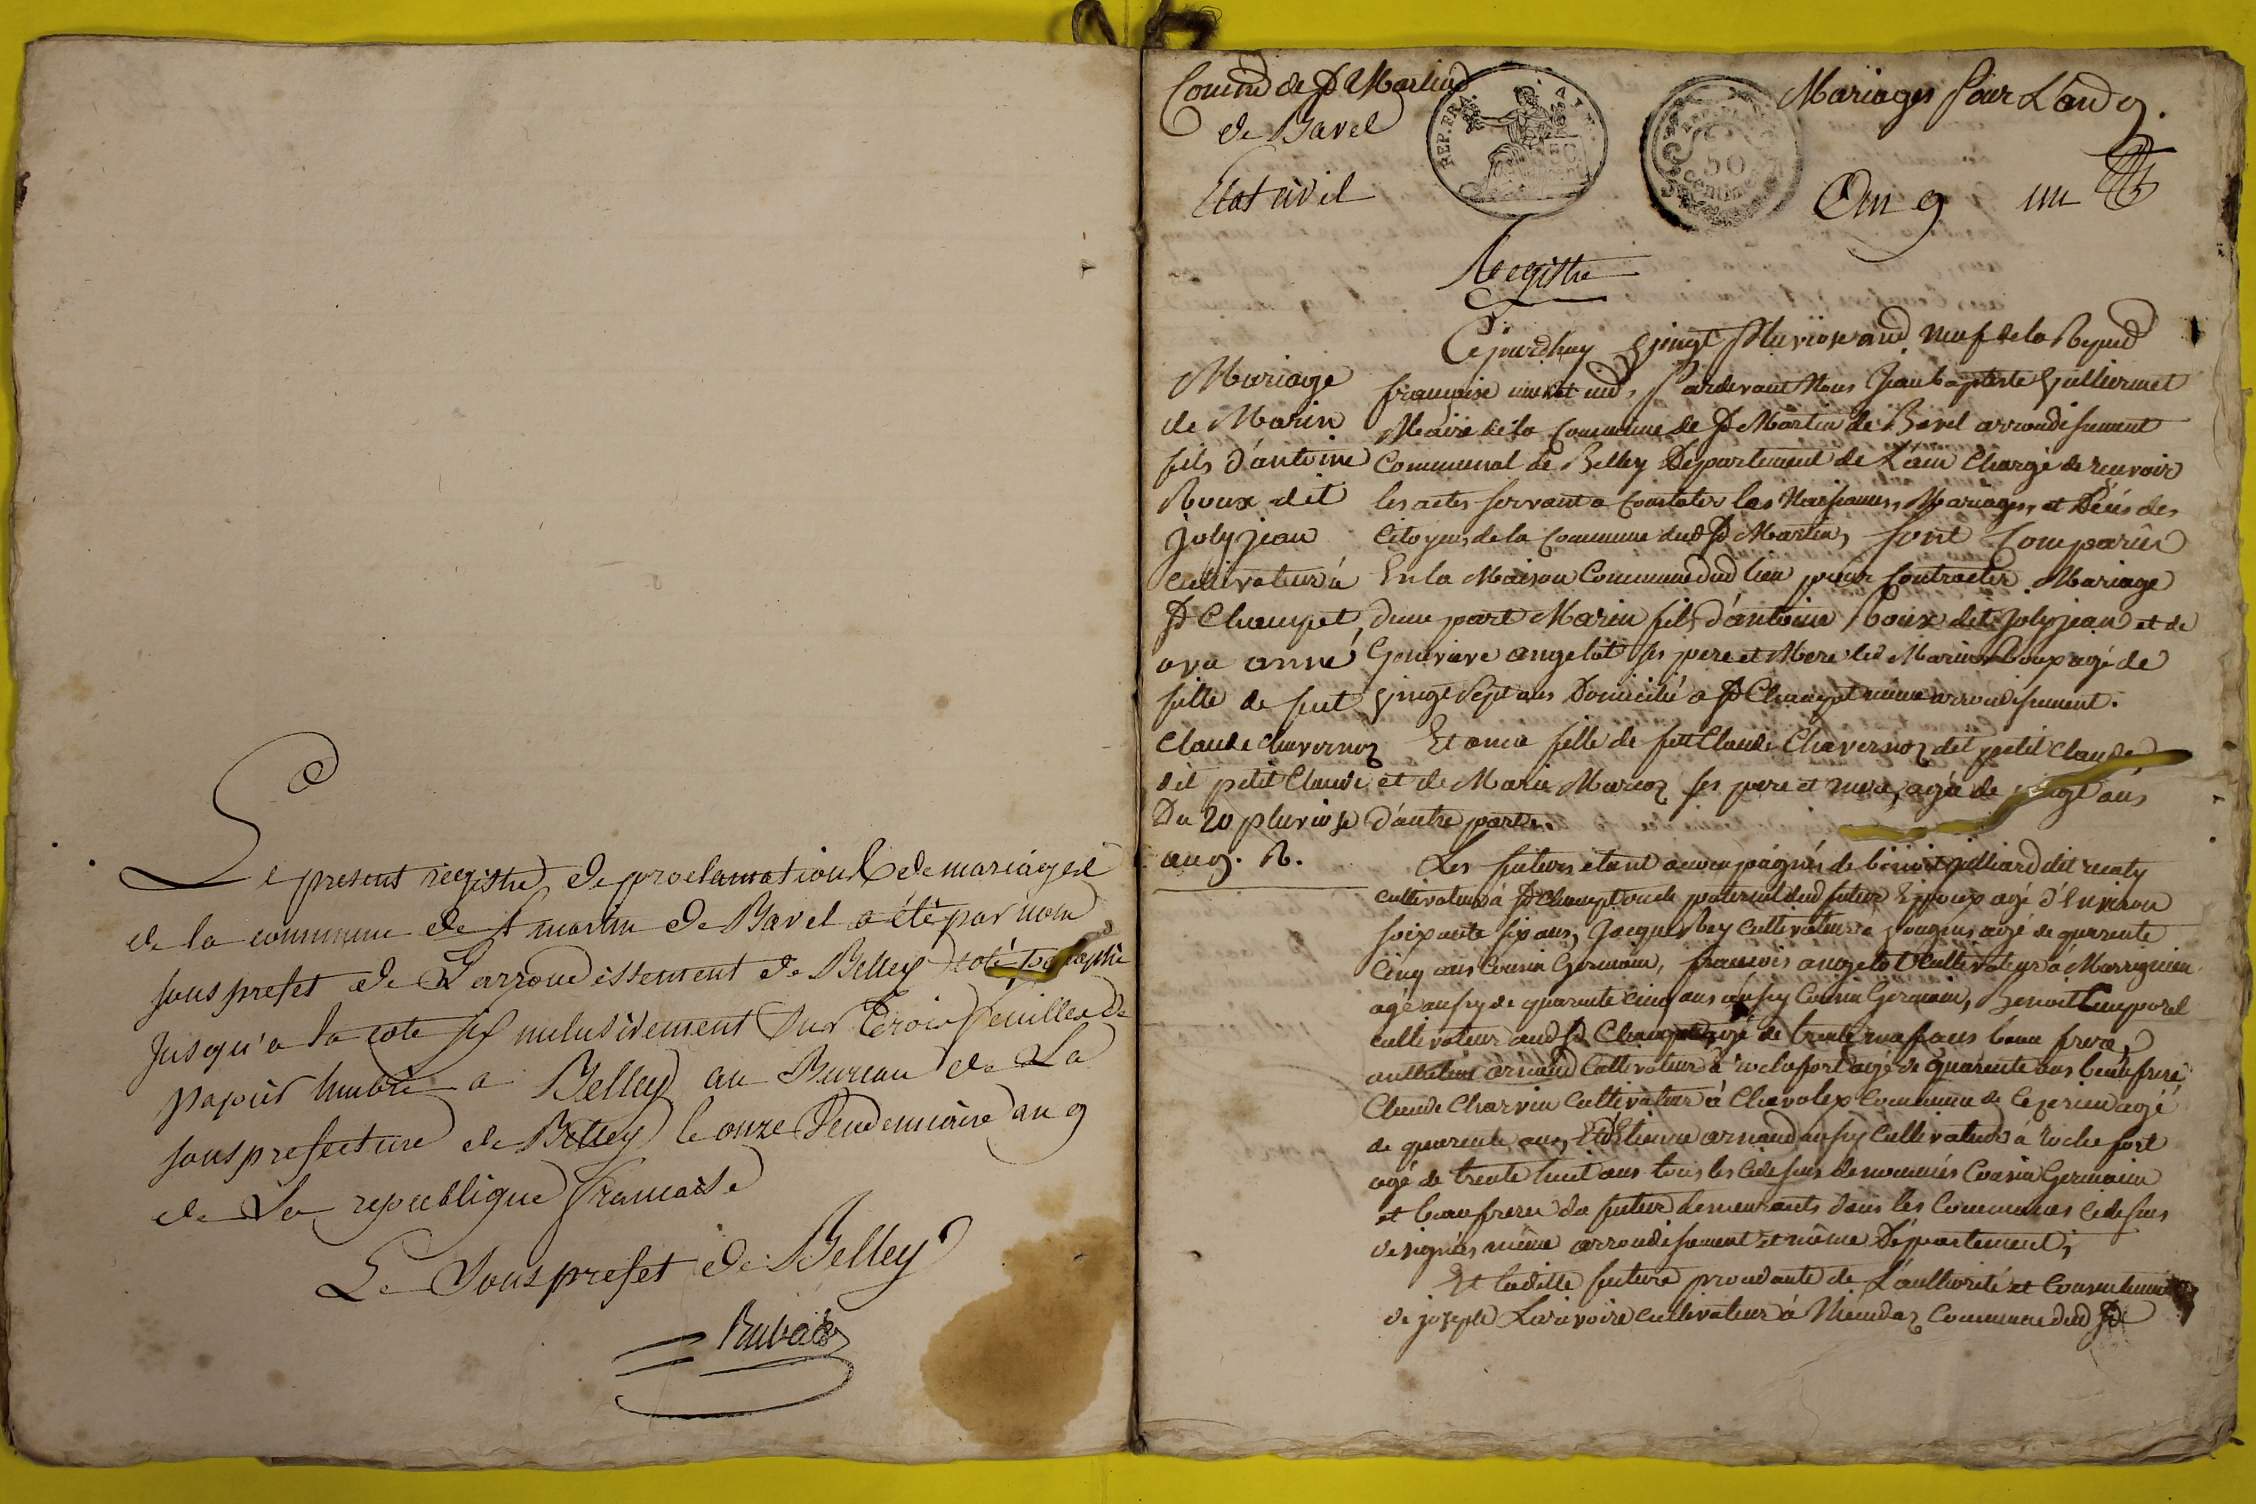 Le present registre de proclamation & de mariages
de la commune de St martin de Bavel a été par nom
sous prefet de L'arrondissement de Belley coté paraphé
jusqu'a la cote six inclusivement sur trois feuilles de
papier timbré a Belley au Bureau de La
sous prefecture de Belley le onze Vendemiaire an 9
de La republique francaise
Le Sous prefet de Belley
Commne de St Martin
de Bavel
Etat civil
REP. FRA.
50
centimes
Mariages Pour L'an 9.
An 9 un
Registre
Mariage
de Marin
fils d'antoine
Roux dit
joly jean
cultivateur à
St Champt,
avec anne
fille de fut
Claude chavernoz
dit petit Claude
Du 20 pluviose
an 9. R.
Cejourdhuy Vingt Pluviose and neuf de la Repud
française une et ind, Pardevant Nous Jean baptiste Guilliermet
Maire de la Commune de St Martin de Bavel arrondissement
Communal de Belley Département de L'ain Chargé de recevoir
les actes servant a Constater les Naissances, Mariages, et Décés des
Citoyens de la Commune dud St Martin, sont Comparûs
En la Maison Commune dud lieu pour Contracter Mariage
d'une part Marin fils d'antoine Roux dit Joly jean et de
Genevieve angelot ses pere et Mere led Marin Roux agé de
Vingt Sept ans Domicilié a St Champt même arrondissement.
Et anne fille de fut Claude Chavernoz dit petit Claude
et de Marie Marcoz ses pere et mere, agée de vingt ans
d'autre parte.
Les futurs etant accompagnés de benoit juilliard dit
cultivateur à St Champt oncle paternel dud futur Epoux agé d'Environ
soixante six ans, Jacques bey Cultivateur a Vongnes agé de quarente
Cinq ans Cousin Germain, francois angelot Cultivateur à Marignieu
agé aussy de quarente cinq ans aussy Cousin Germain, Benoit Temporal
cultivateur aud St Champt agé de trente neuf ans beau frere,
arnaud Cultivateur à rochefort agé de quarente ans beau frere,
Claude Charvin Cultivateur à Chavolex Commune de Ceyzerieu agé
de quarente ans, Et Etienne arnaud aussy Cultivateur à rochefort
agé de trente huit ans tous les cidessus denommés Cousin Germain
et beau freres du futur demeurants dans les Communes cidessus
designées même arrondissement et même Département,
Et ladite future procedante de L'authorité et Consentement
de joseph Larivoire cultivateur à Commune dud St